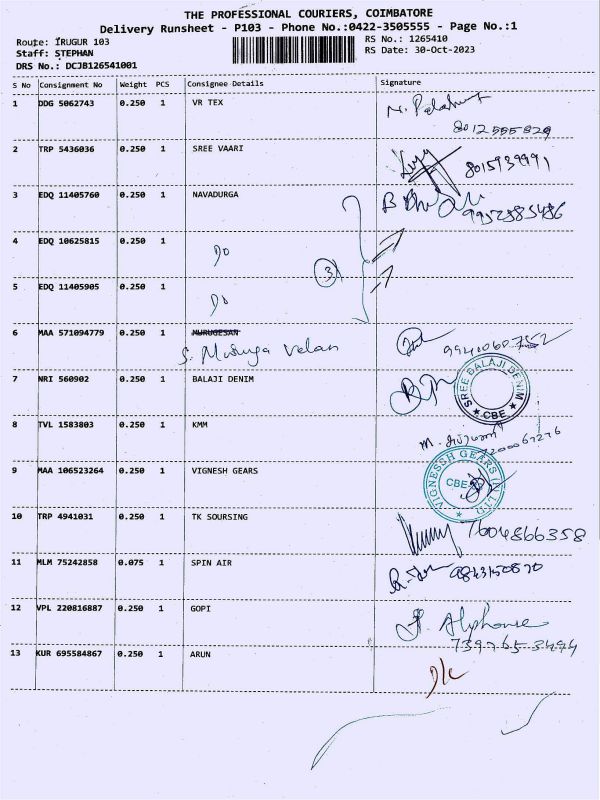 THE PROFESSIONAL COURIERS, COIMBATORE
Delivery Runsheet - P103 - Phone No.:0422-3505555 - Page No.:1
Route: IRUGUR 103 RS No.: 1265410
Staff: STEPHAN RS Date: 30-Oct-2023
DRS No.: DCJB126541001
S No Consignment No Weight PCS Consignee Details Signature
1 DDG 5062743 0.250 1 VR TEX
8012555829
2 TRP 5436036 0.250 1 SREE VAARI 8015939991
3 EDQ 11405760 0.250 1 NAVADURGA 9952585486
4 EDQ 10625815 0.250 1
Do
3
5 EDQ 11405905 0.250 1
Do
6 MAA 571094779 0.250 1 MURUGESAN
S. Muruga Velan 9940060752
7 NRI 560902 0.250 1 BALAJI DENIM
SREE BALAJI DENIM
★ CBE ★
8 TVL 1583803 0.250 1 KMM
9 MAA 106523264 0.250 1 VIGNESH GEARS
VIGNESSH GEARS (N LTD
CBE
10 TRP 4941031 0.250 1 TK SOURSING
7604866358
11 MLM 75242858 0.075 1 SPIN AIR
12 VPL 220816887 0.250 1 GOPI
Alphonse
7397653494
13 KUR 695584867 0.250 1 ARUN
D/L